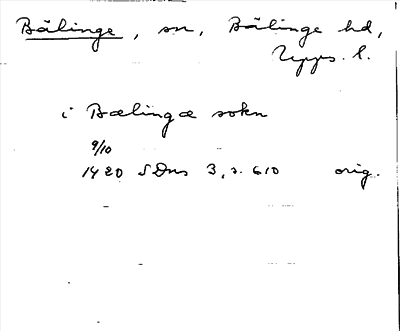 Bälinge, sn, Bälinge hd,
Upps. l.
i Bælingæ sokn
9/10
1420 SDns 3, s. 610 orig.